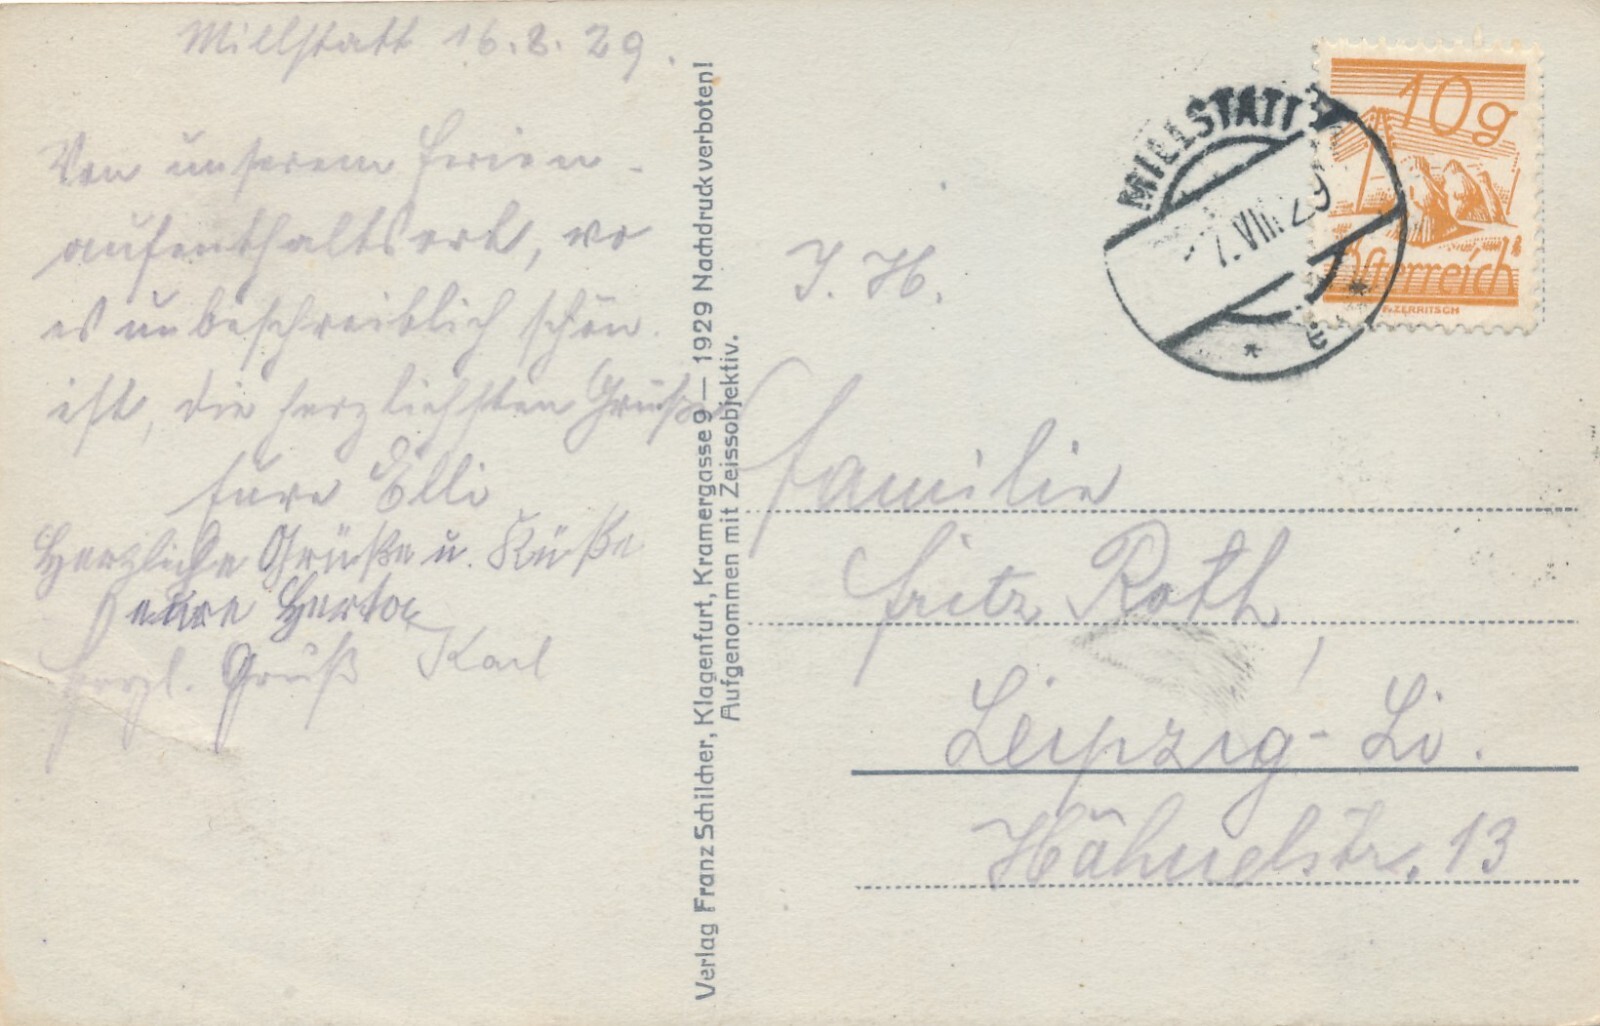 Millstatt 16.8.29.
Von unserem Ferien-
aufenthaltsort, wo
es unbeschreiblich schön
ist, die herzlichsten Grüße
Eure Elli
Herzliche Grüße u. Küße
eure Herta
Herzl. Gruß Karl
Verlag Franz Schilcher, Klagenfurt, Kramergasse 9 — 1929 Nachdruck verboten!
Aufgenommen mit Zeissobjektiv.
MILLSTATT
VIII 29
10g
Österreich
F. ZERRITSCH
Familie
Fritz Roth,
Leipzig-Li.
Hähnelstr. 13